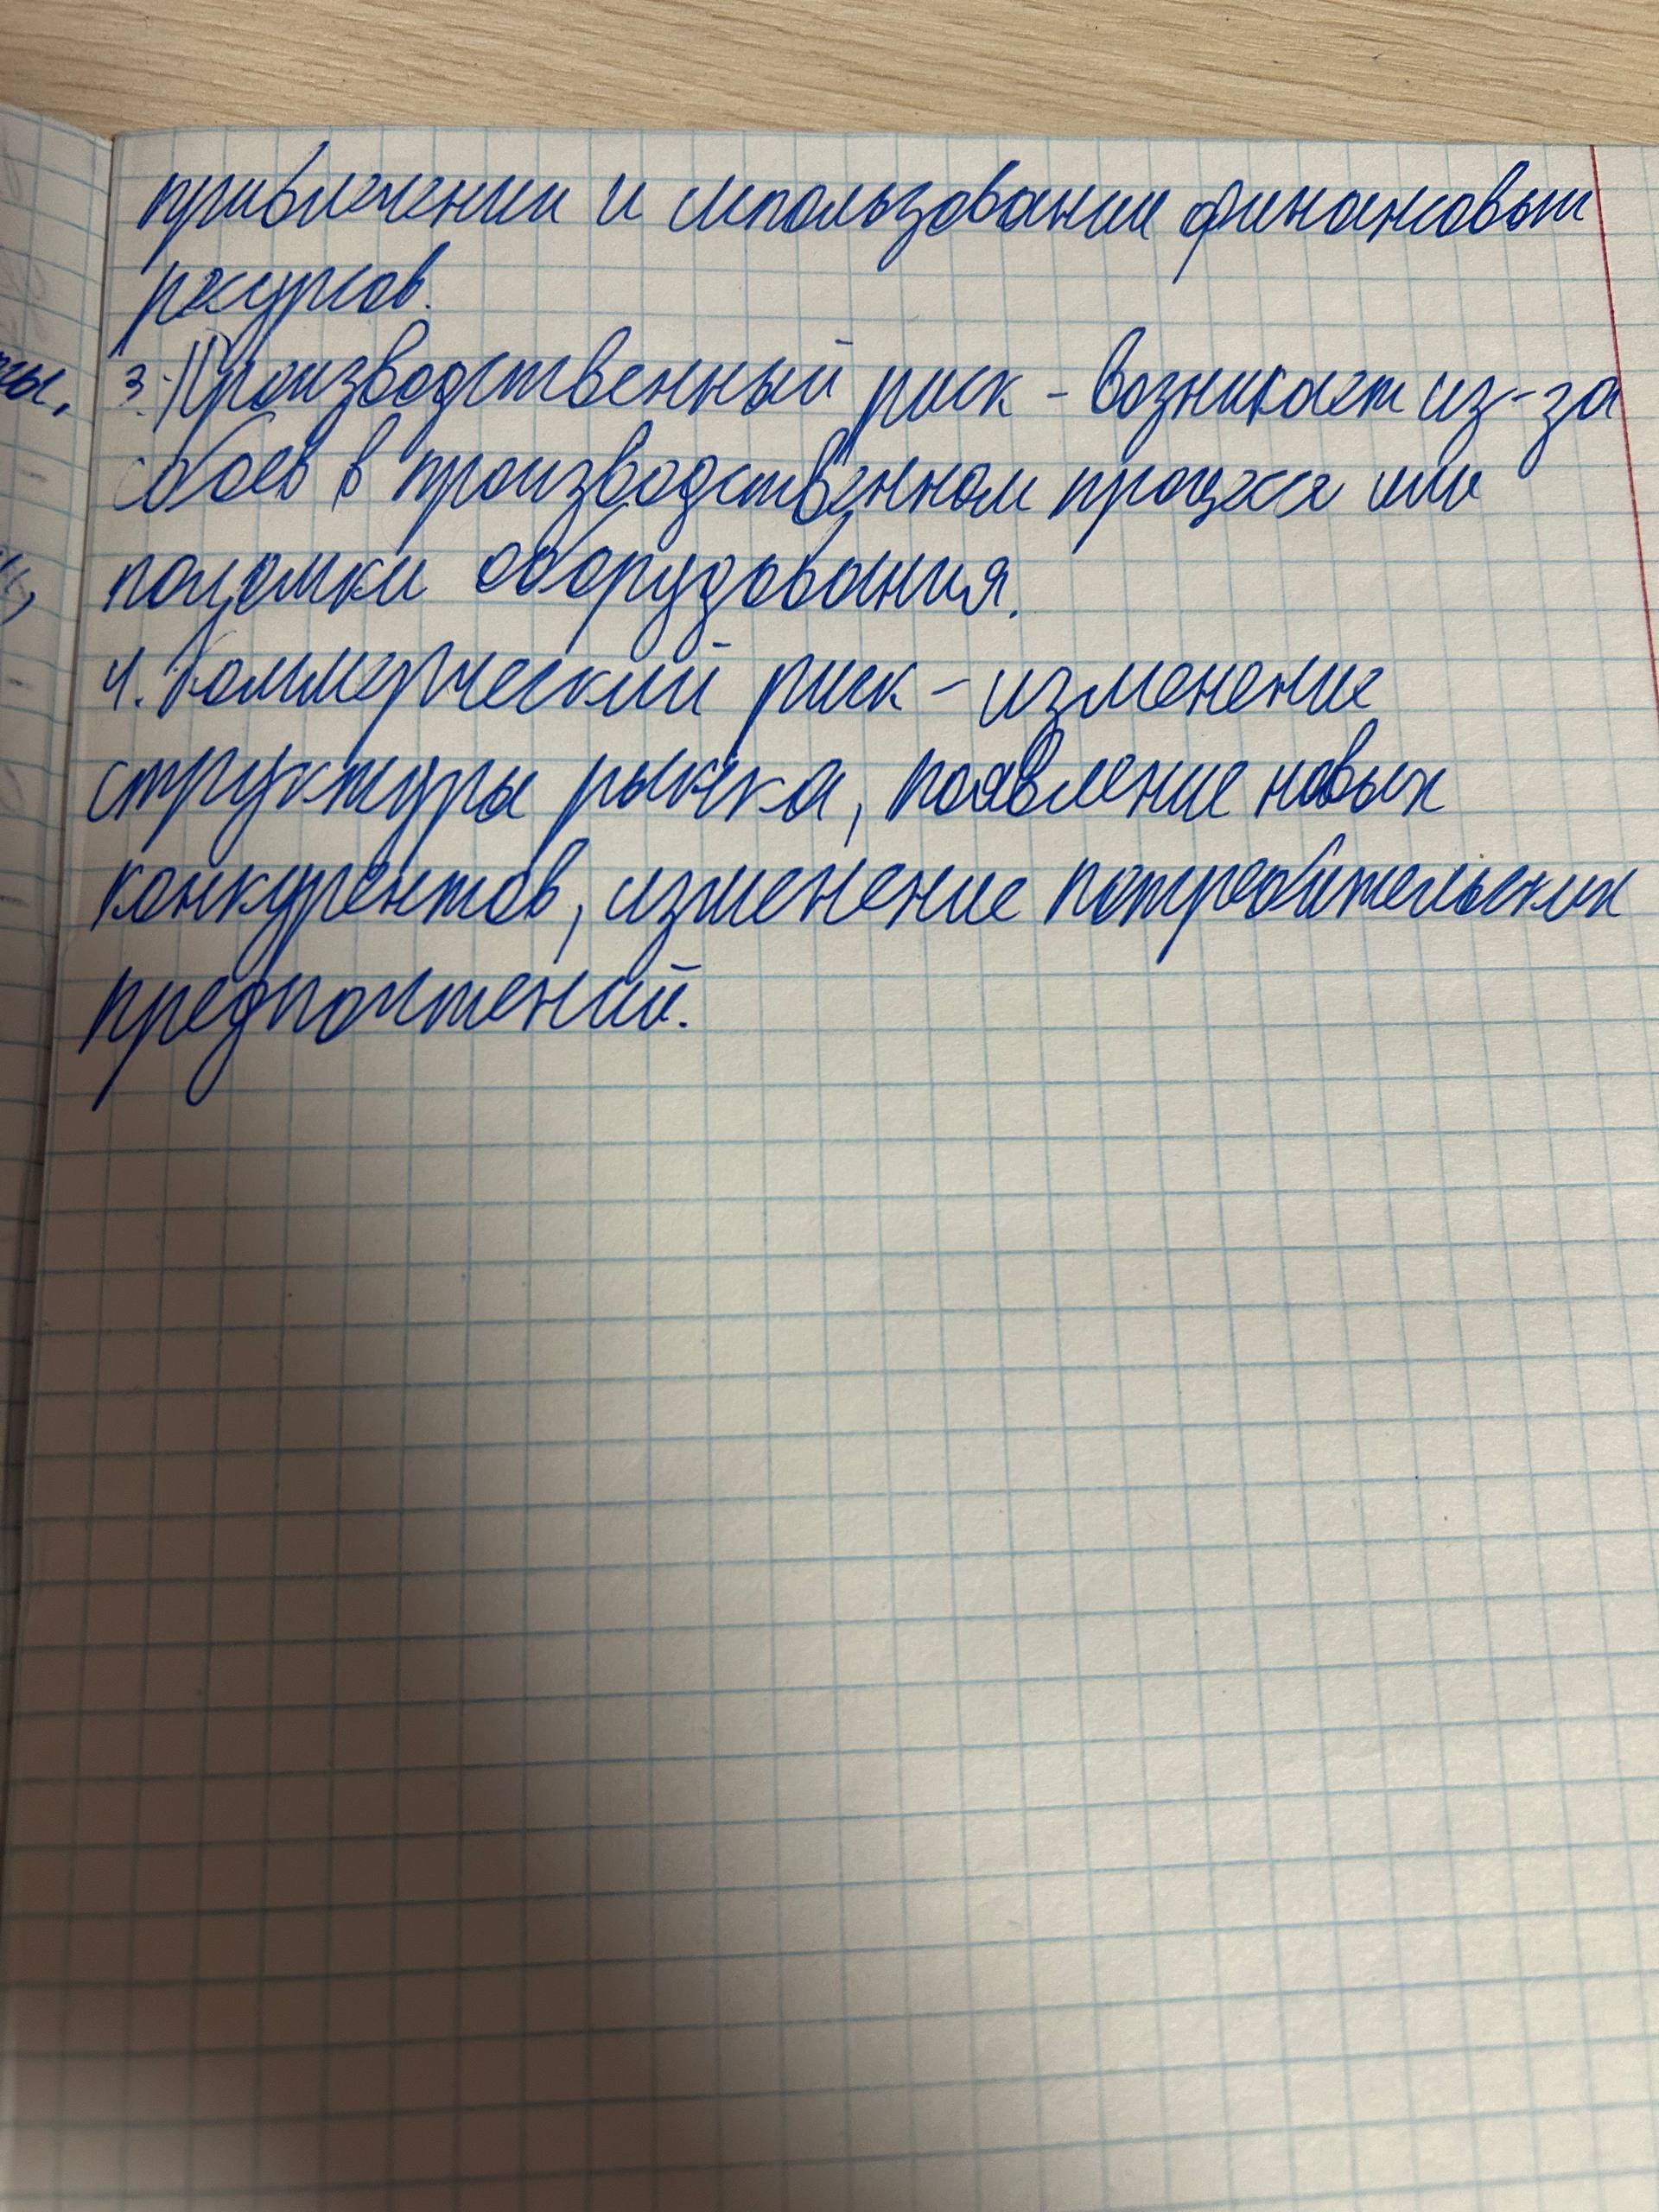 привлечении и использовании финансовых
ресурсов.
3. Производственный риск - возникает из-за
сбоев в производственном процессе или
поломки оборудования.
4. Коммерческий риск - изменение
структуры рынка, появление новых
конкурентов, изменение потребительских
предпочтений.